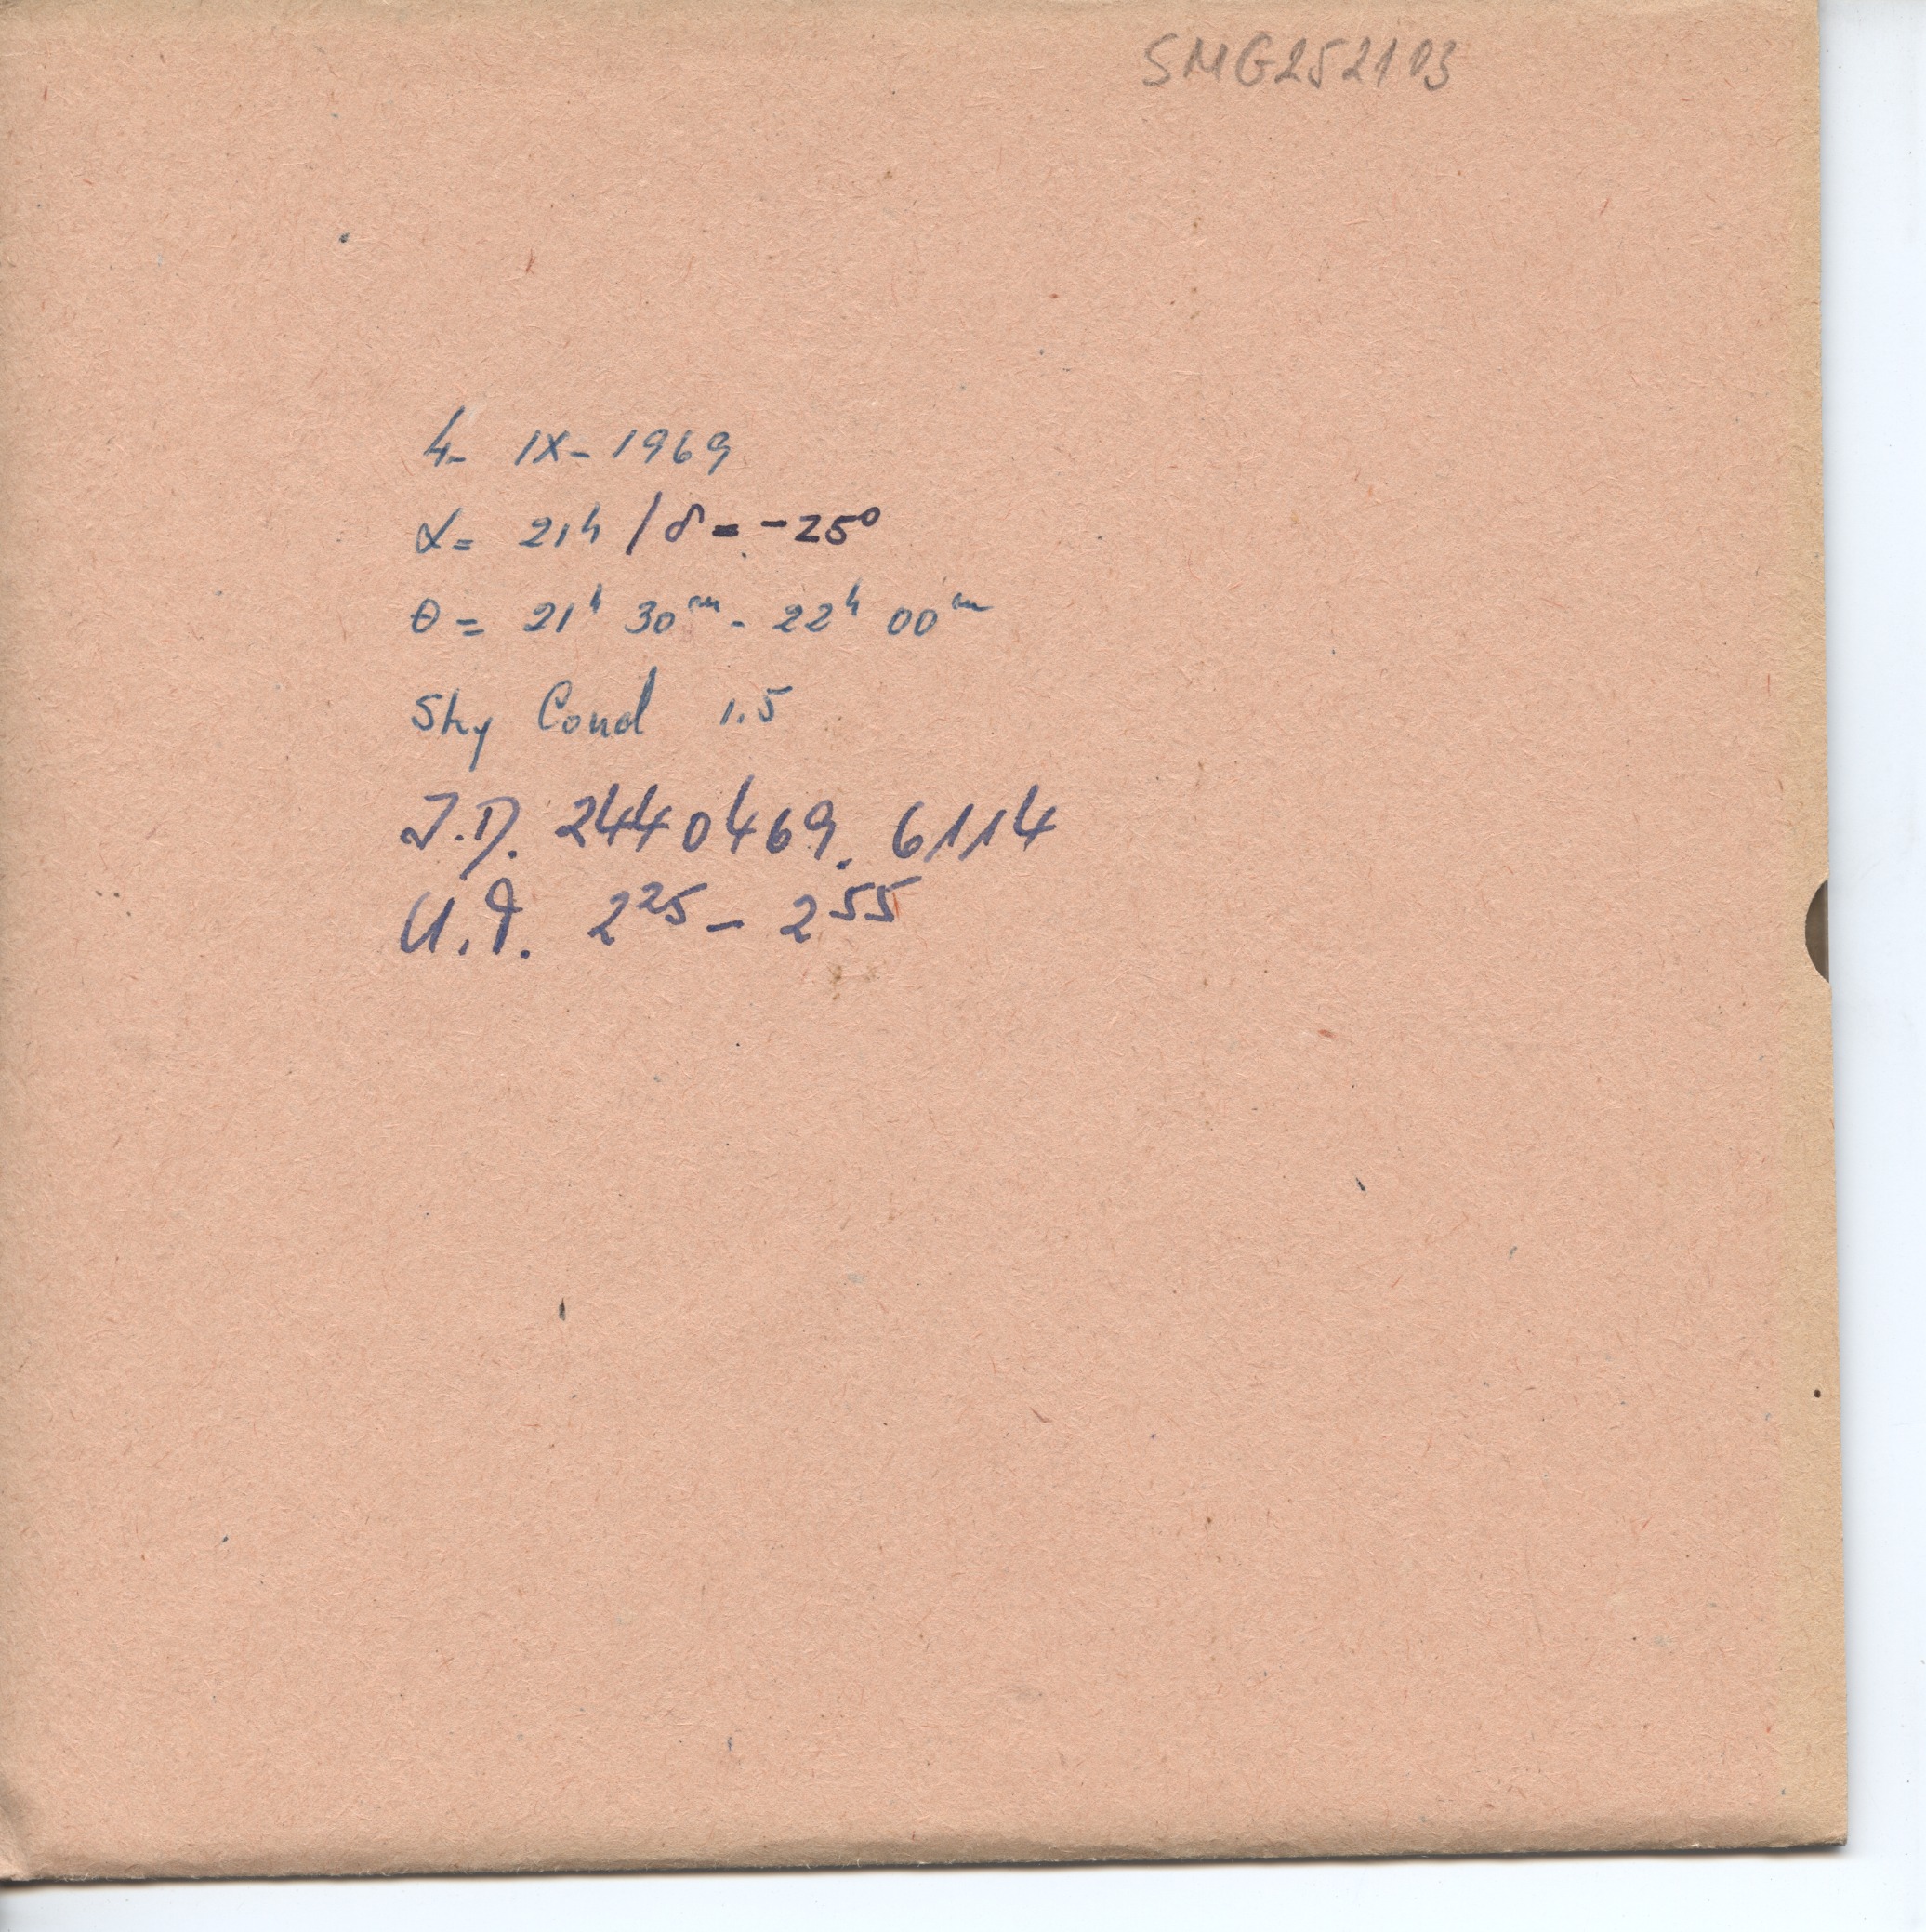 SMG252103
4- IX- 1969
α= 21h / δ = -25°
θ = 21h 30m - 22h 00m
Sky Cond 1.5
J.D. 2440469.6114
U.T. 2 25 - 2 55